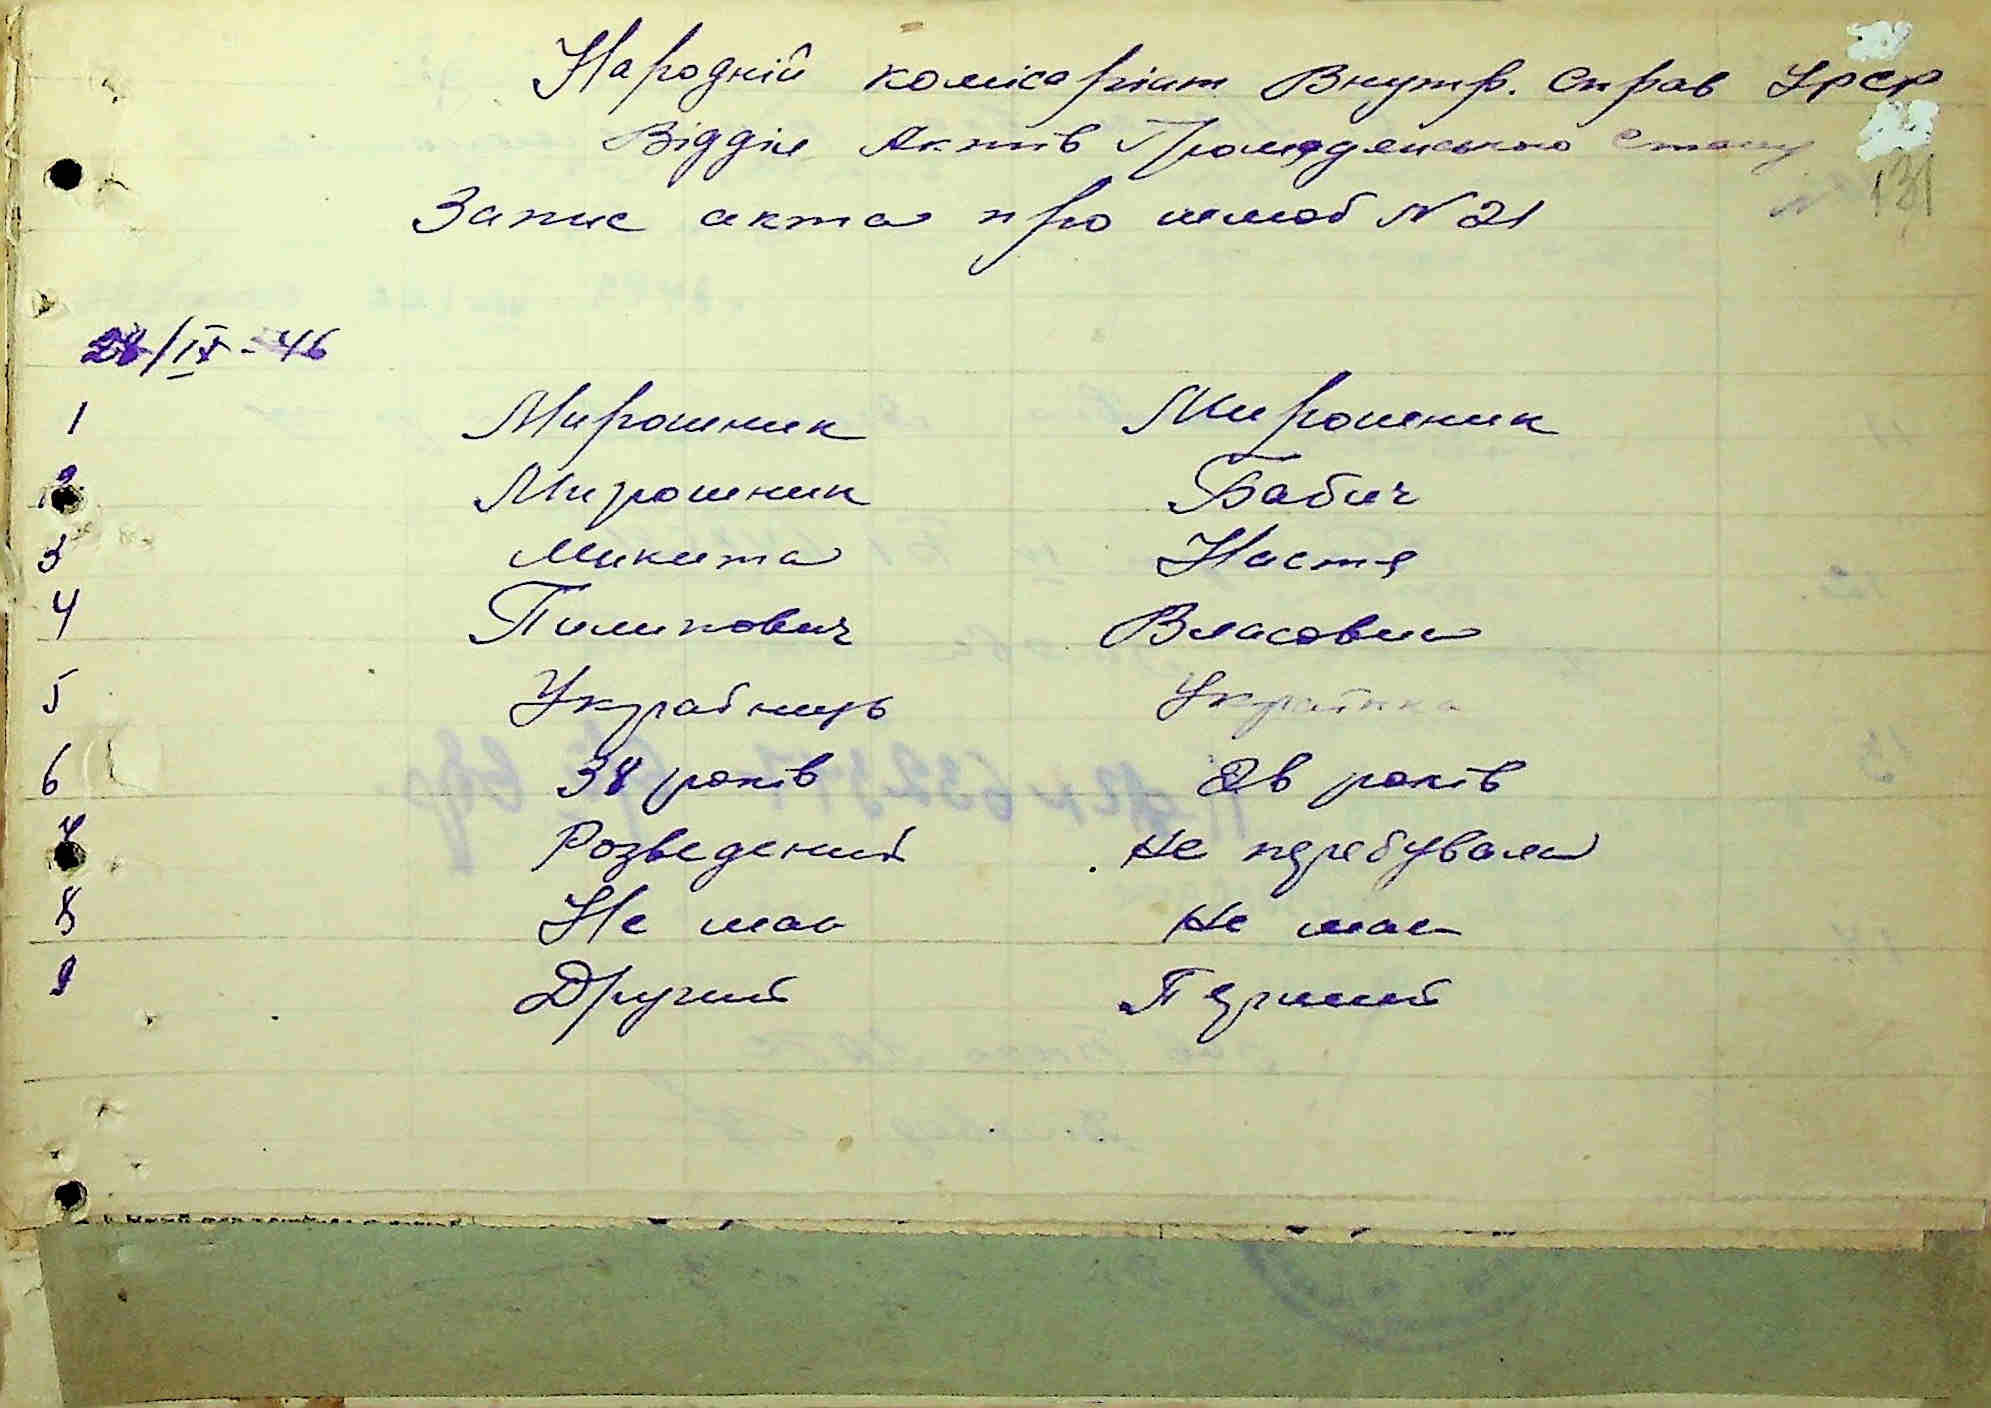 Народній комісаріат Внутр. Справ УРСР
Відділ Актів Громадянського Стану
131
Запис акта про шлюб N 21
28/IX-46
1 Мирошник Мирошник
2 Мирошник Бабич
3 Микита Настя
4 Пилипович Власовна
5 Українець Українка
6 38 років років
7 Розведений Не перебувала
8 Не має Не має
9 Другий Перший